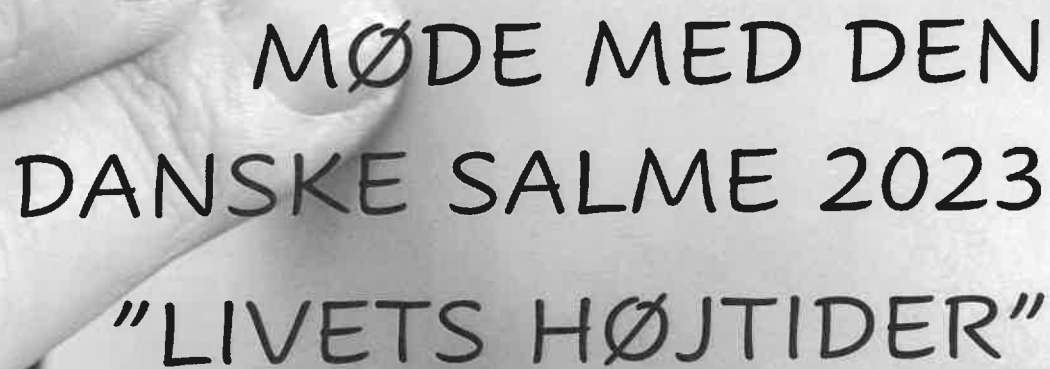 MØDE MED DEN
DANSKE SALME 2023
"LIVETS HØJTIDER"